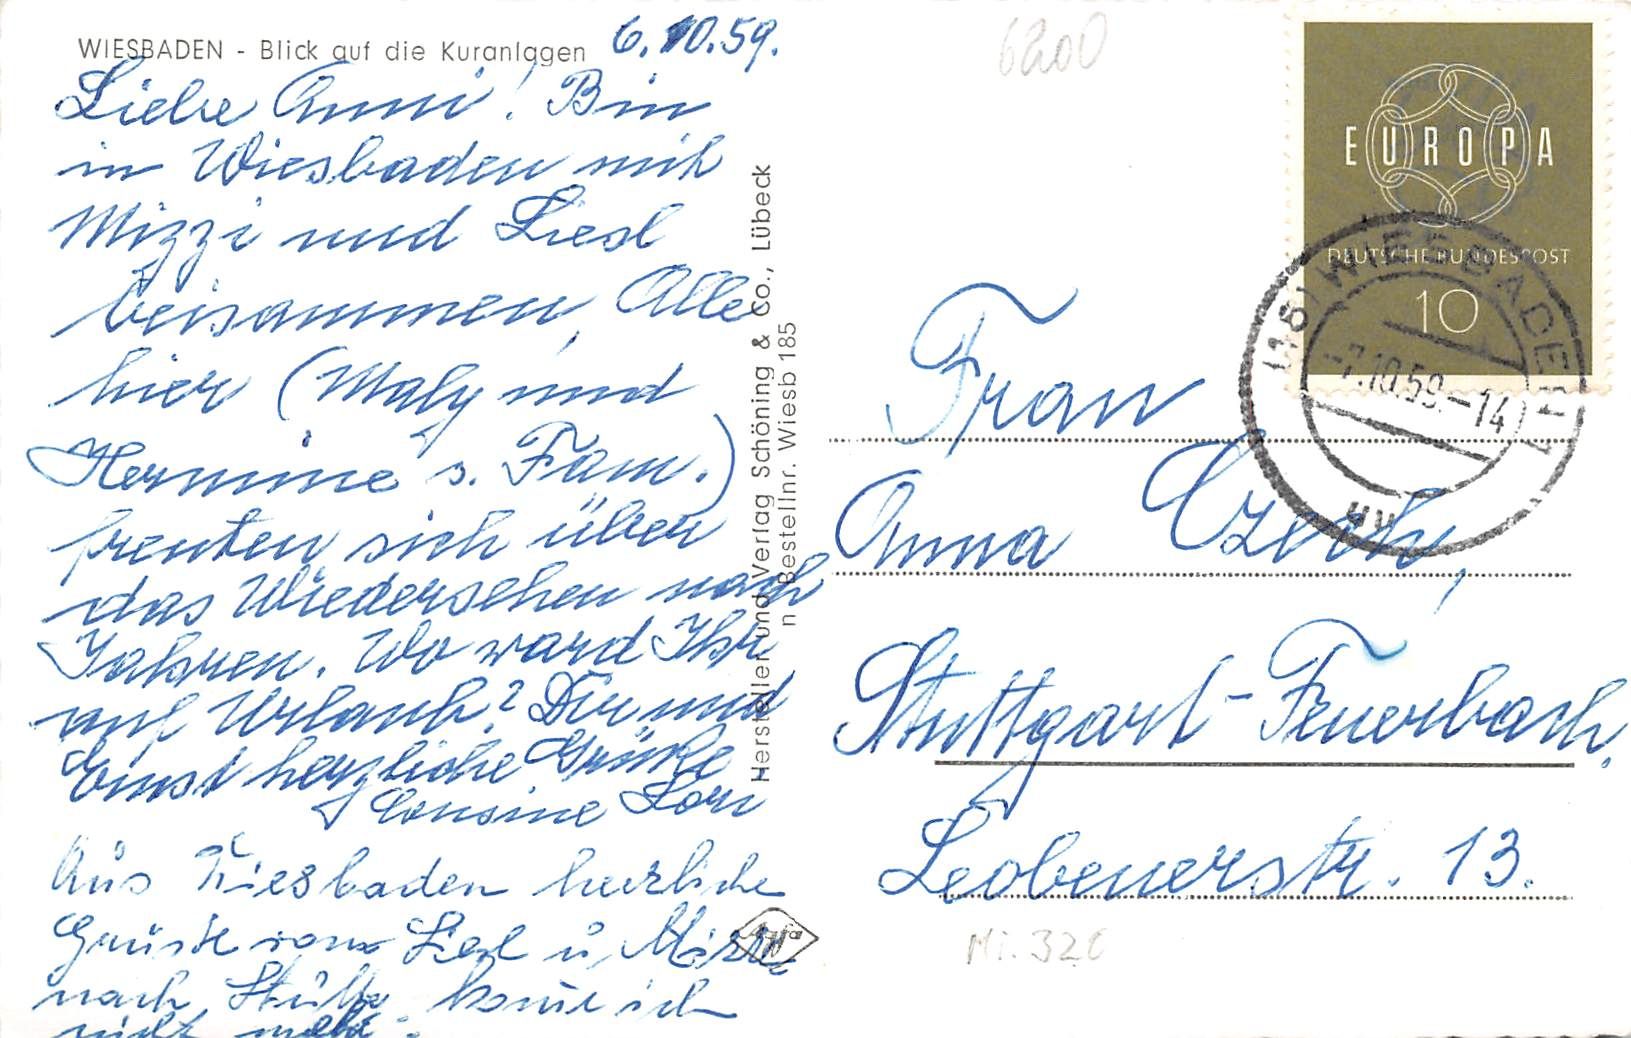 WIESBADEN - Blick auf die Kuranlagen
6.10.59.
Liebe Anni! Bin
in Wiesbaden mit
Mizzi und Liesl
beisammen, Alle
hier (Maly und
Hermine s. Fam.)
freuten sich über
das Wiedersehen nach
Jahren. Wo ward Ihr
auf Urlaub? Dir und
Ernst herzliche Grüße
Cousine Lori
Aus Wiesbaden herzliche
Grüsse von Liesl u. Mizzi
nach Stuttg. konnte ich
nicht mehr.
Hersteller und Verlag Schöning & Co., Lübeck
n Bestellnr. Wiesb 185
Agfa
6200
EUROPA
DEUTSCHE BUNDESPOST
10
(16) WIESBADEN 1
-7.10.59.-14
uw
Frau
Anna Czech,
Stuttgart-Feuerbach,
Leobenerstr. 13.
Mi. 320